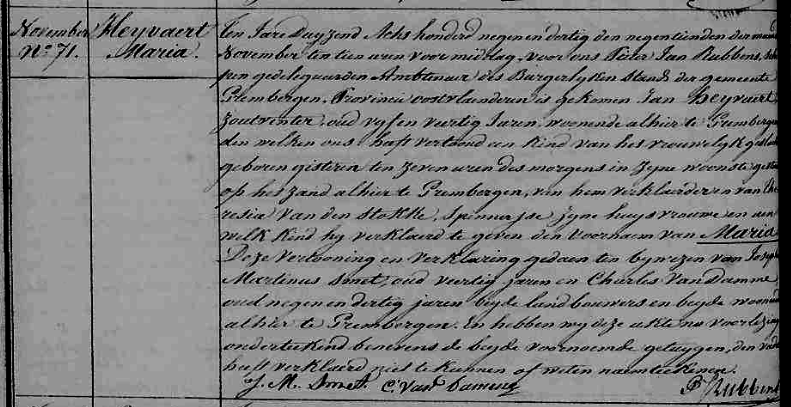 November
N.o 71.
Heyvaert
Maria.
Ten Jare Duyzend Acht honderd negen en dertig den negentienden der maand
November ten tien uren voormiddag, voor ons Pieter Jan Rubbens, Sche
pen gedelegueerden Ambtenaer des Burgerlyken Stands der gemeente
Grembergen, Provincie oostvlaanderen is gekomen Jan Heyvaert
Zoutvinter, oud vyf en veertig Jaren, woonende alhier te Grembergen
den welken ons heeft vertoond een kind van het vrouwelyk geslacht
geboren gisteren ten zeven uren des morgens in zyne woonste gestaen
op het Zand alhier te Grembergen, van hem verklaerder en van The
resia Van den Stokke, Spinnersse zyne huysvrouwe en aen
welk kind hy verklaerd te geven den voornaam van Maria
Deze vertooning en verklaring gedaen ten bywezen van Joseph
Martinus Smet, oud veertig jaren en Charles Van Damme,
oud negen en dertig jaren beyde landbouwers en beyde woonende
alhier te Grembergen. En hebben wy deze akte na voorlezing
onderteekend benevens de beyde voornoemde getuygen, den vader
heeft verklaerd niet te kunnen of weten naemteekenen.
J. M. Smet. C. Van Damme P. Rubbens